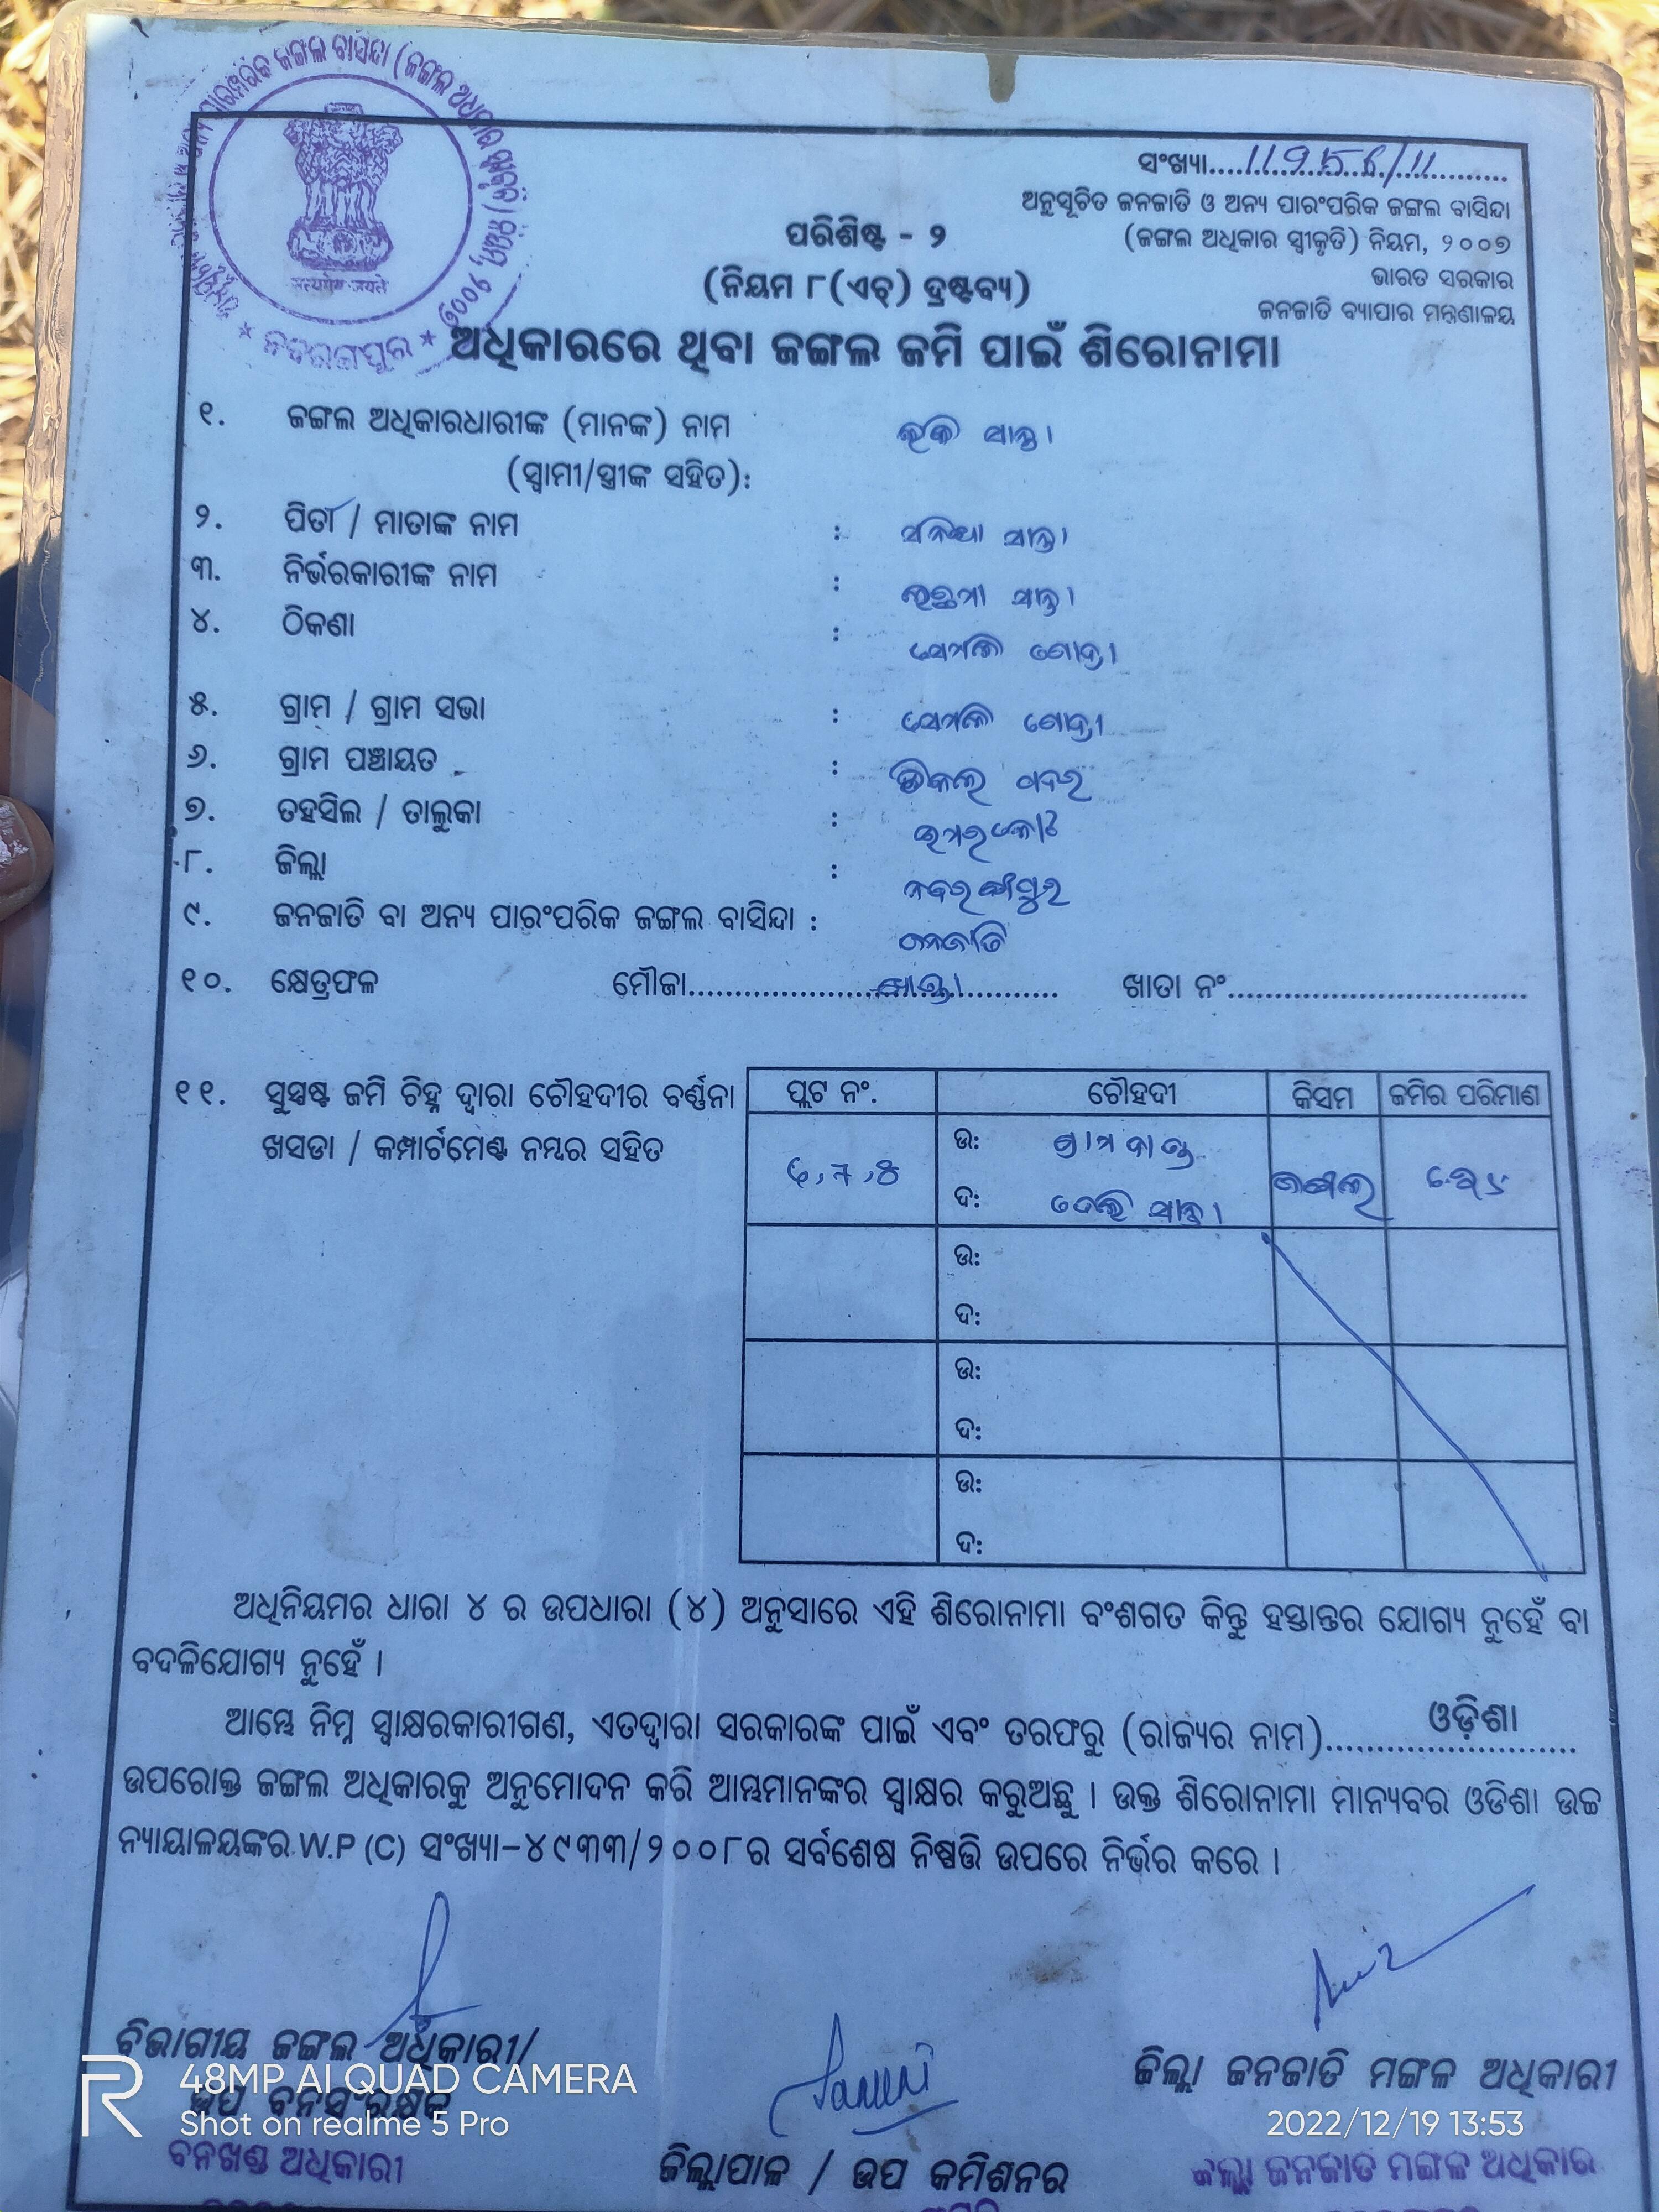 ସଂଖ୍ୟା....11956/11....
ଅନୁସୂଚିତ ଜନଜାତି ଓ ଅନ୍ୟ ପାରଂପରିକ ଜଙ୍ଗଲ ବାସିନ୍ଦା
(ଜଙ୍ଗଲ ଅଧିକାର ସ୍ୱୀକୃତି) ନିୟମ, ୨୦୦୭
ଭାରତ ସରକାର
ଜନଜାତି ବ୍ୟାପାର ମନ୍ତ୍ରଣାଳୟ
ପରିଶିଷ୍ଟ - ୨
(ନିୟମ ୮(ଏଚ୍) ଦ୍ରଷ୍ଟବ୍ୟ)
ନବରଙ୍ଗପୁର
ଅଧିକାରରେ ଥିବା ଜଙ୍ଗଲ ଜମି ପାଇଁ ଶିରୋନାମା
୧. ଜଙ୍ଗଲ ଅଧିକାରଧାରୀଙ୍କ (ମାନଙ୍କ) ନାମ ସାନ୍ତା
(ସ୍ୱାମୀ/ସ୍ତ୍ରୀଙ୍କ ସହିତ):
୨. ପିତା / ମାତାଙ୍କ ନାମ : ସାନ୍ତା
୩. ନିର୍ଭରକାରୀଙ୍କ ନାମ : ଲଛମୀ ସାନ୍ତା
୪. ଠିକଣା : ସେମଳି
୫. ଗ୍ରାମ / ଗ୍ରାମ ସଭା : ସେମଳି
୬. ଗ୍ରାମ ପଞ୍ଚାୟତ :
୭. ତହସିଲ / ତାଲୁକା : ଉମରକୋଟ
୮. ଜିଲ୍ଲା : ନବରଙ୍ଗପୁର
୯. ଜନଜାତି ବା ଅନ୍ୟ ପାରଂପରିକ ଜଙ୍ଗଲ ବାସିନ୍ଦା : ଜନଜାତି
୧୦. କ୍ଷେତ୍ରଫଳ ମୌଜା.................... ଖାତା ନଂ................................
୧୧. ସୁସ୍ପଷ୍ଟ ଜମି ଚିହ୍ନ ଦ୍ୱାରା ଚୌହଦୀର ବର୍ଣ୍ଣନା
ଖସଡା / କମ୍ପାର୍ଟମେଣ୍ଟ ନମ୍ବର ସହିତ
ପ୍ଲଟ ନଂ. ଚୌହଦୀ କିସମ ଜମିର ପରିମାଣ
ଉ: ଗ୍ରାମ
ଦ: ସାନ୍ତା ଜଙ୍ଗଲ
ଉ:
ଦ:
ଉ:
ଦ:
ଉ:
ଦ:
ଅଧିନିୟମର ଧାରା ୪ ର ଉପଧାରା (୪) ଅନୁସାରେ ଏହି ଶିରୋନାମା ବଂଶଗତ କିନ୍ତୁ ହସ୍ତାନ୍ତର ଯୋଗ୍ୟ ନୁହେଁ ବା
ବଦଳିଯୋଗ୍ୟ ନୁହେଁ ।
ଆମ୍ଭେ ନିମ୍ନ ସ୍ୱାକ୍ଷରକାରୀଗଣ, ଏତଦ୍ଦ୍ୱାରା ସରକାରଙ୍କ ପାଇଁ ଏବଂ ତରଫରୁ (ରାଜ୍ୟର ନାମ)....ଓଡ଼ିଶା....
ଉପରୋକ୍ତ ଜଙ୍ଗଲ ଅଧିକାରକୁ ଅନୁମୋଦନ କରି ଆମ୍ଭମାନଙ୍କର ସ୍ୱାକ୍ଷର କରୁଅଛୁ । ଉକ୍ତ ଶିରୋନାମା ମାନ୍ୟବର ଓଡିଶା ଉଚ୍ଚ
ନ୍ୟାୟାଳୟଙ୍କର W.P (C) ସଂଖ୍ୟା-୪୯୩୩/୨୦୦୮ର ସର୍ବଶେଷ ନିଷ୍ପତ୍ତି ଉପରେ ନିର୍ଭର କରେ ।
ବିଭାଗୀୟ ଜଙ୍ଗଲ ଅଧିକାରୀ/
ଉପ ବନସଂରକ୍ଷକ
ବନଖଣ୍ଡ ଅଧିକାରୀ
ଜିଲ୍ଲାପାଳ / ଉପ କମିଶନର
ଜିଲ୍ଲା ଜନଜାତି ମଙ୍ଗଳ ଅଧିକାରୀ
ଜିଲ୍ଲା ଜନଜାତି ମଙ୍ଗଳ ଅଧିକାରୀ
48MP AI QUAD CAMERA
Shot on realme 5 Pro
2022/12/19 13:53